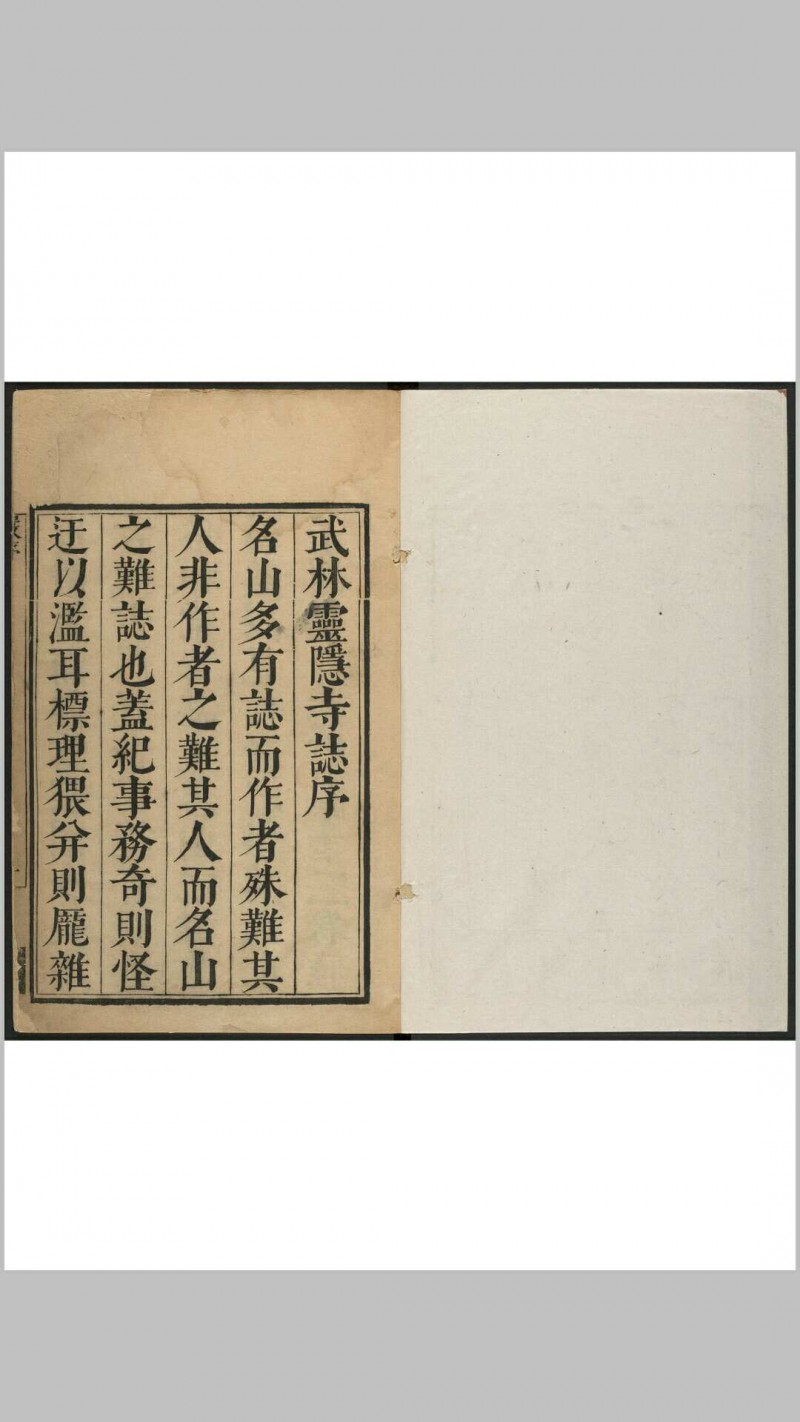 武林靈隱寺誌序
名山多有誌而作者殊難其
人非作者之難其人而名山
之難誌也蓋紀事務奇則怪
迂以濫耳標理猥弁則龎雜